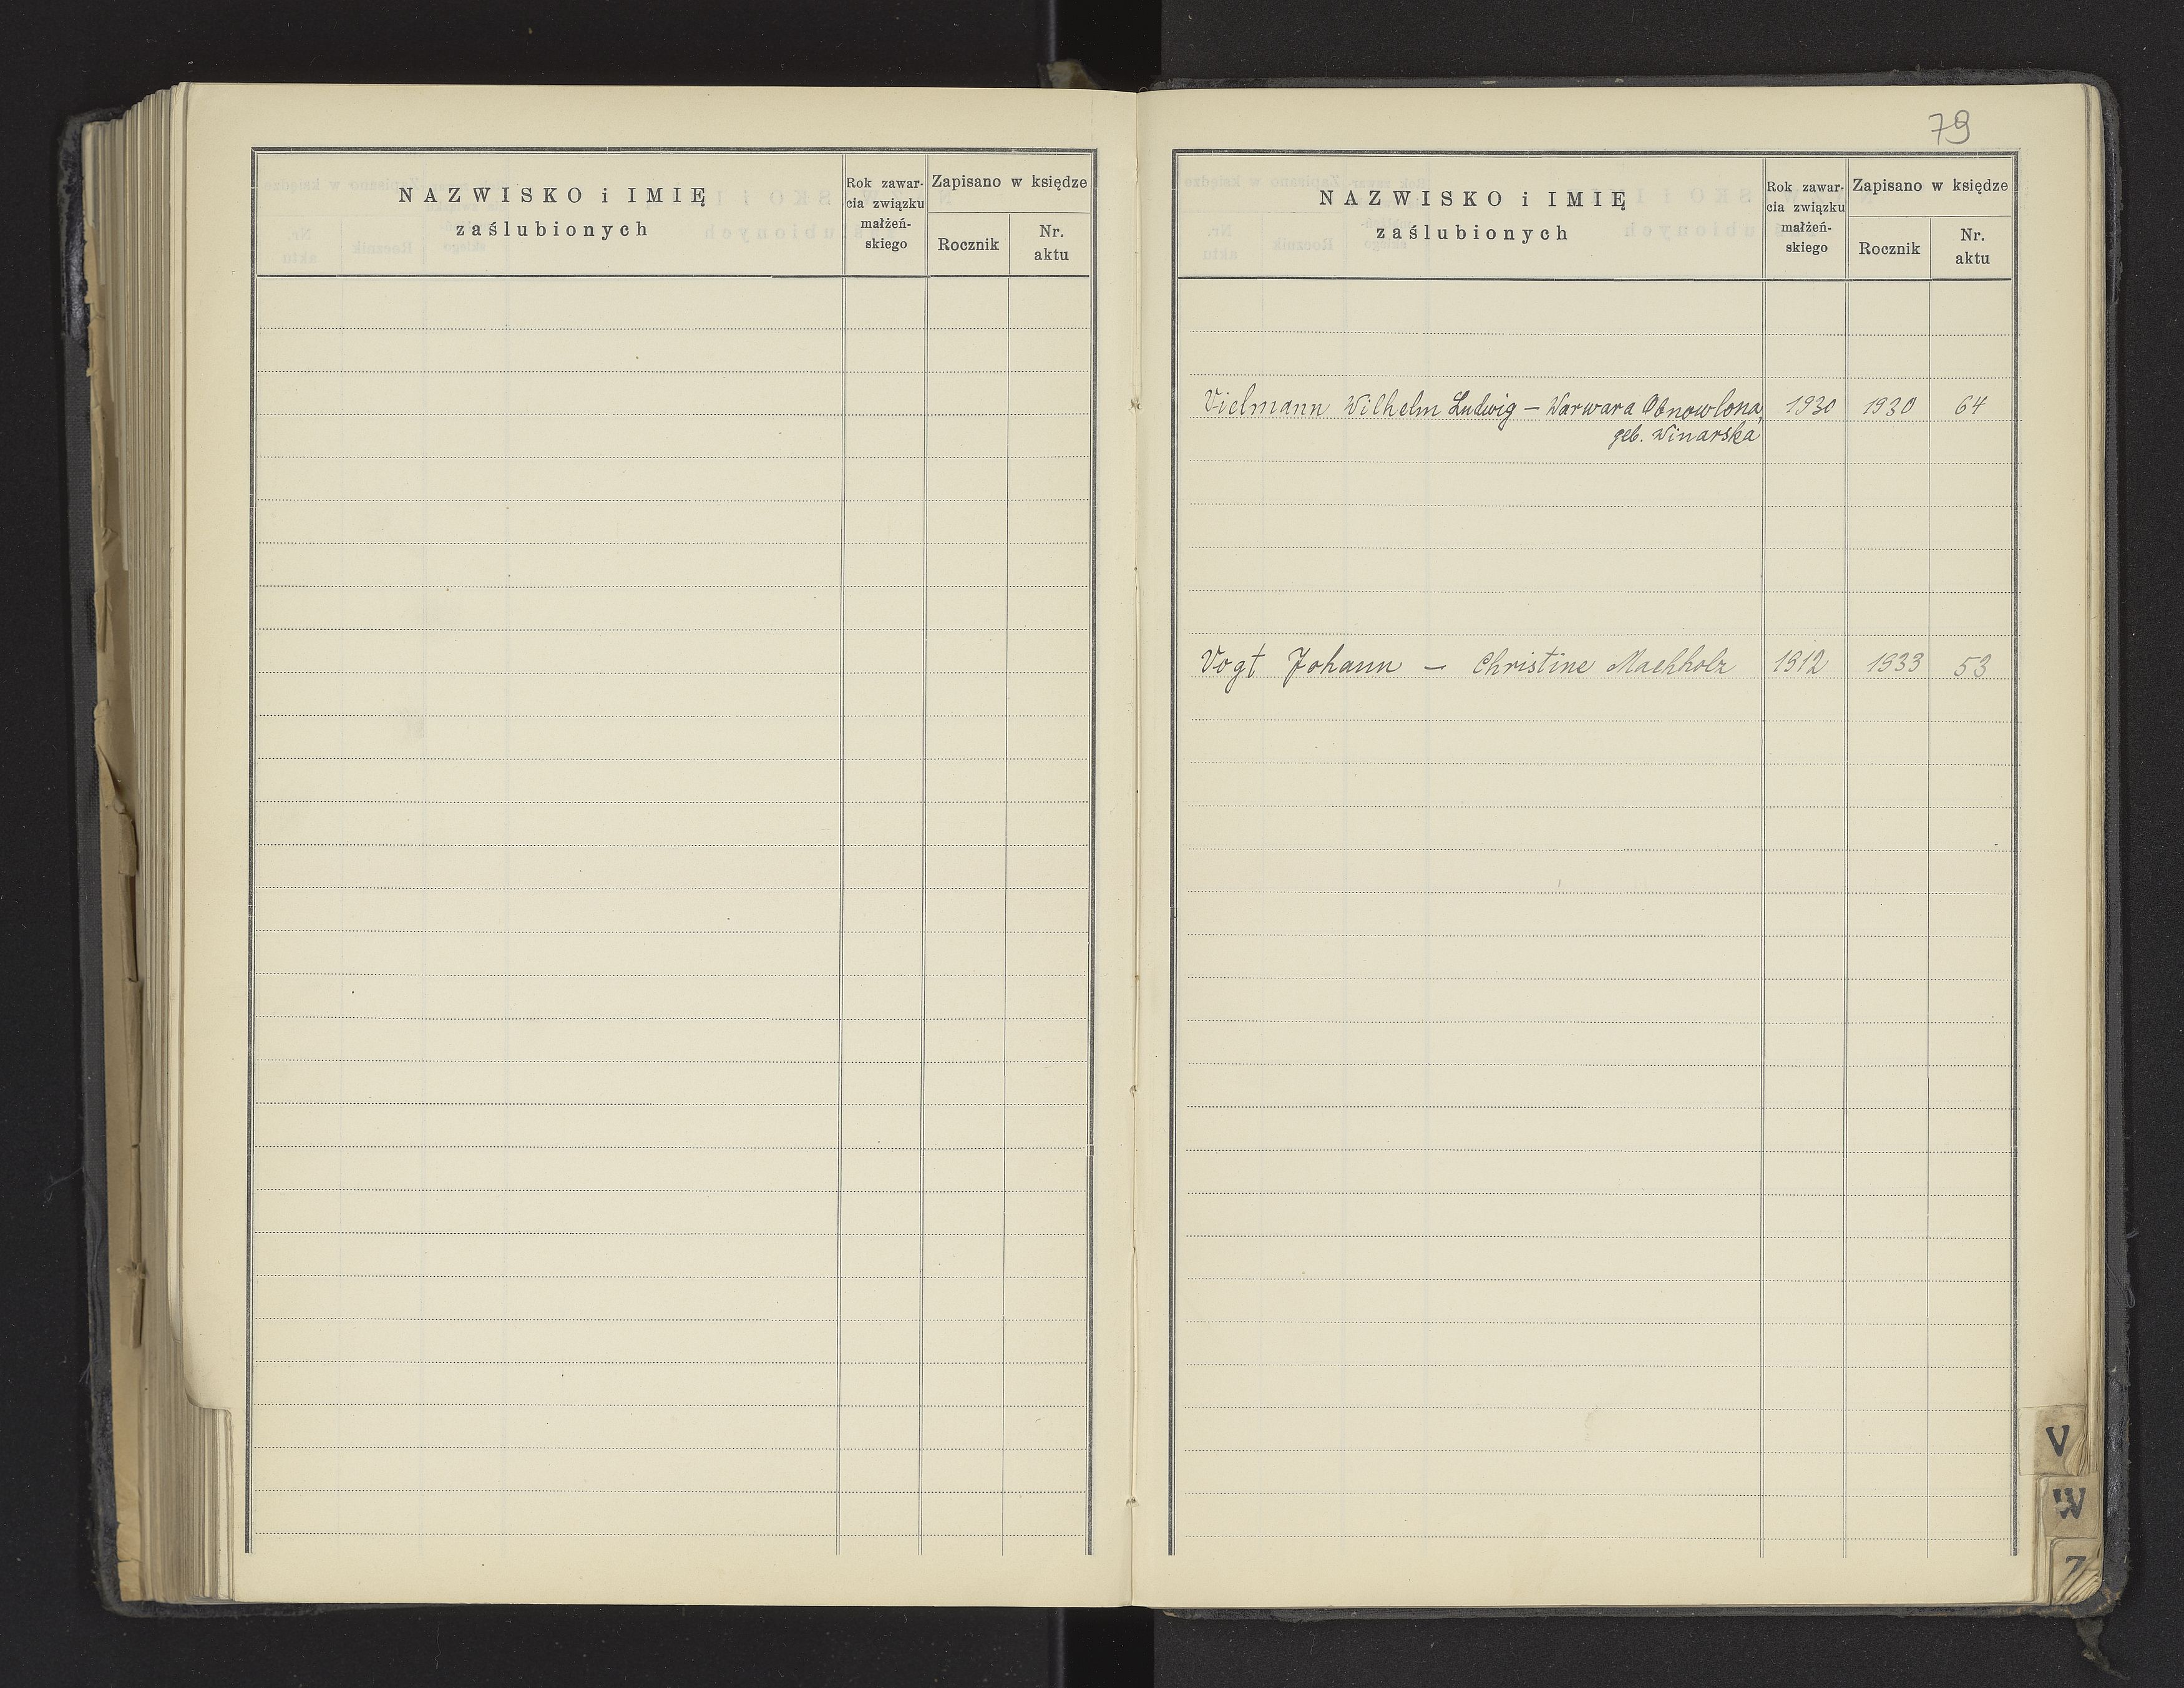 NAZWISKO i IMIĘ
zaślubionych
Rok zawar-
cia związku
małżeń-
skiego
Zapisano w księdze
Rocznik
Nr.
aktu
79
NAZWISKO i IMIĘ
zaślubionych
Rok zawar-
cia związku
małżeń-
skiego
Zapisano w księdze
Rocznik
Nr.
aktu
Vielmann Wilhelm Ludwig – Warwara Obnowlona, 1930 1930 64
geb. Winarska
Vogt Johann – Christine Machholz 1912 1933 53
V
W
Z